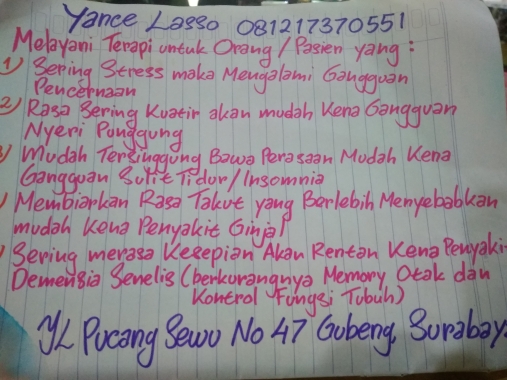 Yance Lasso 081217370551
Melayani Terapi untuk Orang / Pasien yang :
1) Sering Stress maka Mengalami Gangguan
Pencernaan
2) Rasa Sering Kuatir akan mudah Kena Gangguan
Nyeri Punggung
Mudah Tersinggung Bawa Perasaan Mudah Kena
Gangguan Sulit Tidur / Insomnia
Membiarkan Rasa Takut yang Berlebih Menyebabkan
mudah Kena Penyakit Ginjal
Sering merasa Kesepian Akan Rentan Kena Penyaki
Demensia Senelis (berkurangnya Memory Otak dan
Kontrol Fungsi Tubuh)
JL Pucang Sewu No 47 Gubeng, Surabay